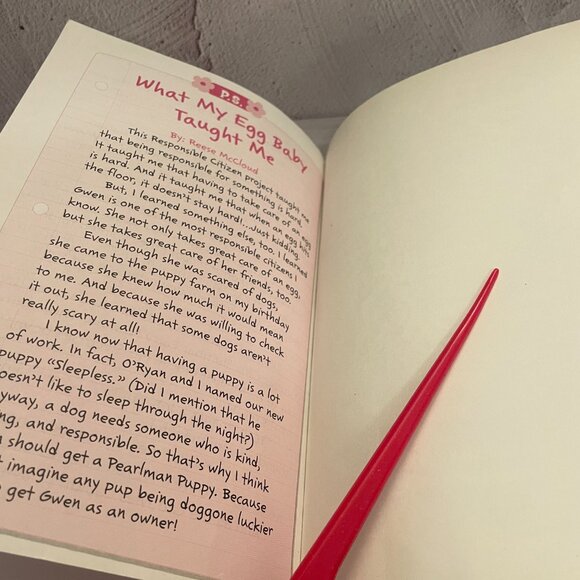 P.S.
What My Egg Baby
Taught Me
By: Reese McCloud
This Responsible Citizen project taught me
that being responsible for something is hard.
It taught me that having to take care of an egg
is hard. And it taught me that when an egg hits
the floor, it doesn't stay hard!...Just kidding.
But, I learned something else, too. I learned
Gwen is one of the most responsible citizens I
know. She not only takes great care of an egg,
but she takes great care of her friends, too.
Even though she was scared of dogs,
she came to the puppy farm on my birthday
because she knew how much it would mean
to me. And because she was willing to check
it out, she learned that some dogs aren't
really scary at all!
I know now that having a puppy is a lot
of work. In fact, O'Ryan and I named our new
puppy "Sleepless." (Did I mention that he
doesn't like to sleep through the night?)
yway, a dog needs someone who is kind,
ng, and responsible. So that's why I think
should get a Pearlman Puppy. Because
imagine any pup being doggone luckier
get Gwen as an owner!